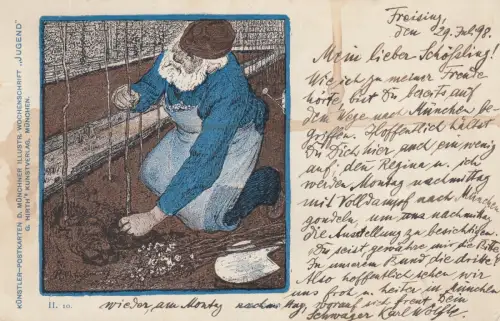 KÜNSTLER-POSTKARTEN D. MÜNCHNER ILLUSTR. WOCHENSCHRIFT „JUGEND"
G. HIRTH' KUNSTVERLAG, MÜNCHEN.
Freising,
den 29. Juli 98.
Mein lieber Schößling!
Wie ich zu meiner Freude
hörte bist Du bereits auf
dem Wege nach München be-
griffen. Hoffentlich hältst
Du Dich hier auch ein wenig
auf; den Regina u. ich
werden Montag nachmittag
mit Volldampf nach München
gondeln um uns nachmittag
die Ausstellung zu besichtigen.
Du seist, gewähre mir die Bitte
In unserem Bund die dritte!
Also hoffentlich sehen wir
uns froh u. heiter in München
wieder, am Montag nachmittag, worauf sich freut Dein
Schwager Karl
II. 10.